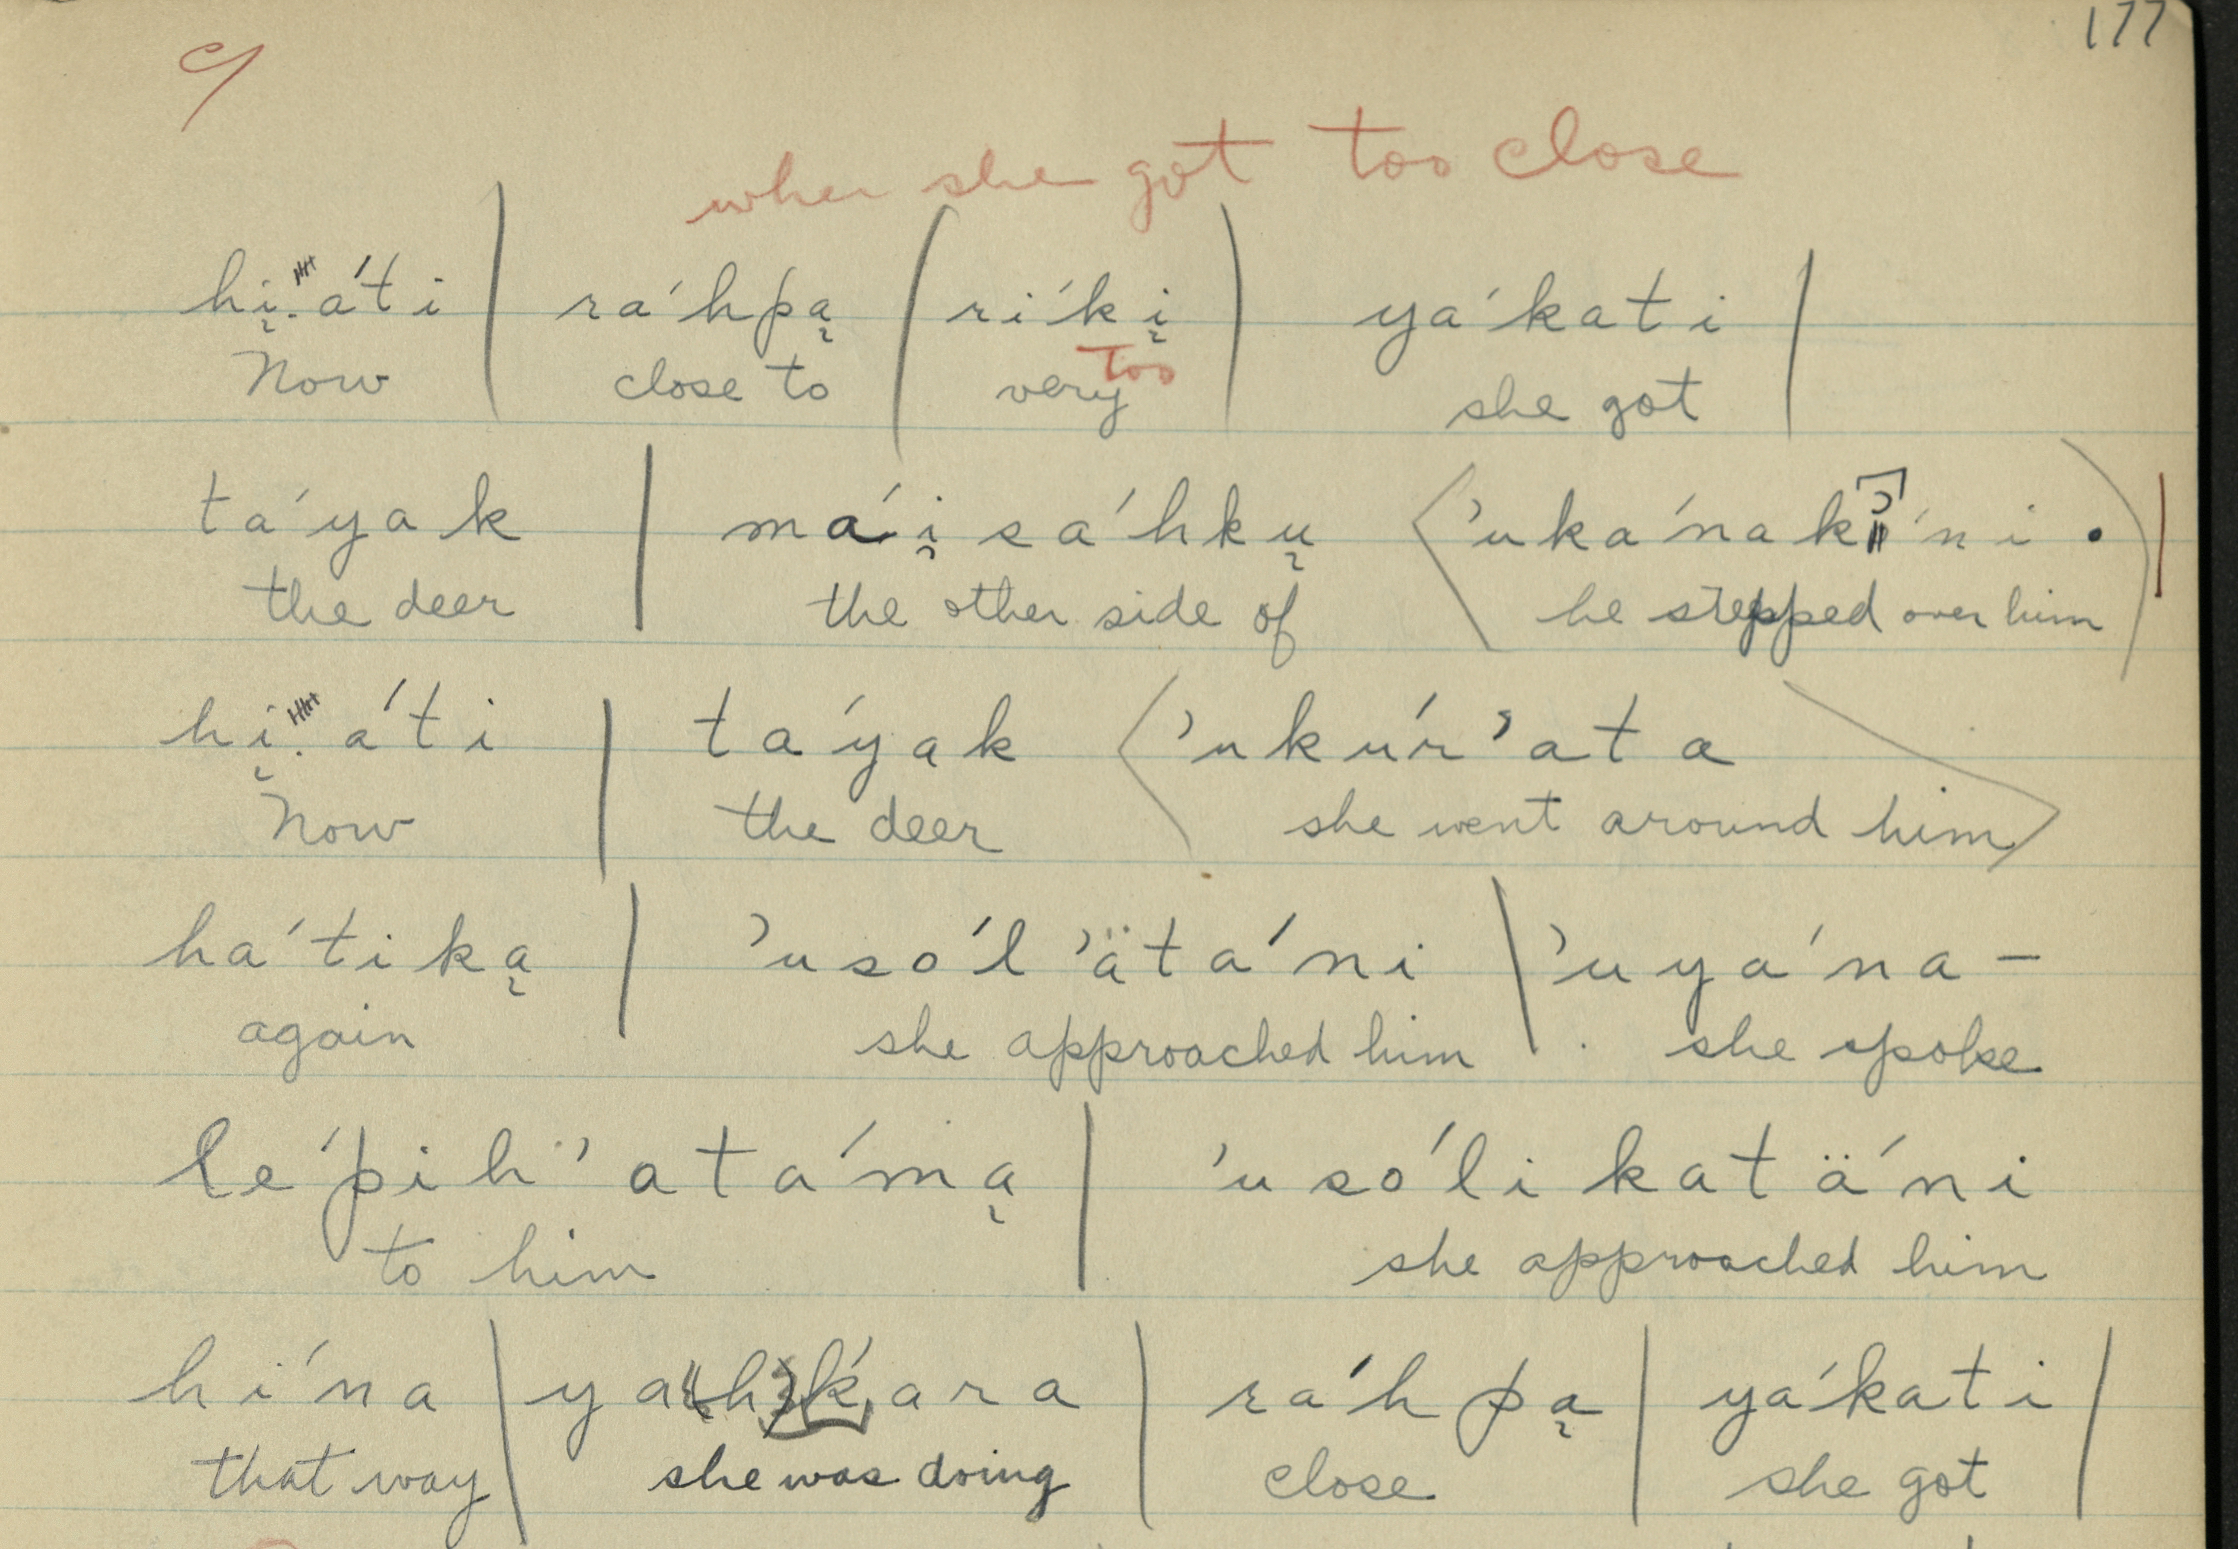 177
when she got too close
hį.áti | ra´hpą ( ri´kį ) ya´kati |
Now | close to ( very too ) she got |
ta´yak | má.į sa´hkų ⟨ ’uka´nakI´ni . ) |
the deer | the other side of ⟨ he stepped over him )
hį. a´ti | ta´yak ⟨ ’ukúr’ata ⟩
Now | the deer ⟨ she went around him ⟩
ha´tiką | ’uso´l’äta´ni | ’uya´na –
again | she approached him | she spoke
le´pih’ata´mą | ’uso´likatä´ni
to him | she approached him
hi´na | ya(h)k´ara | ra´hpą | ya´kati |
that way | she was doing | close | she got |